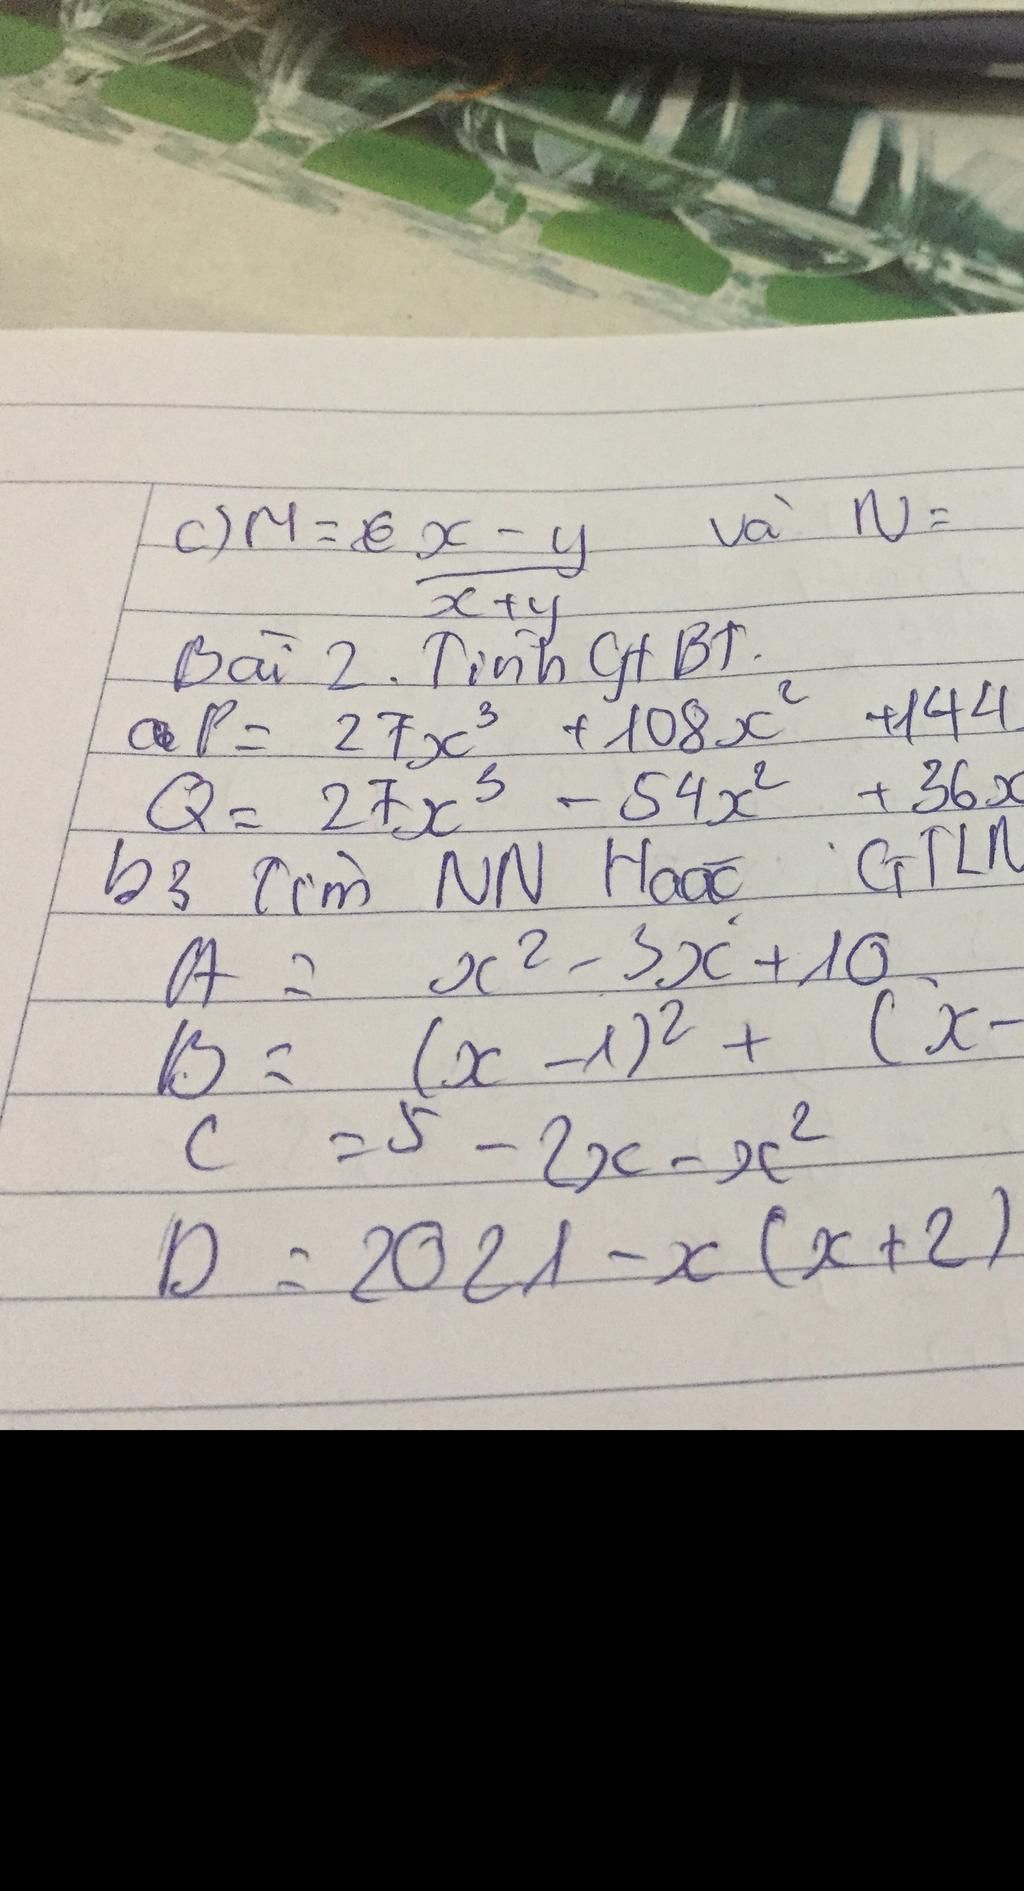 c) M = x - y / x + y và N =
Bài 2. Tính GTBT.
a P = 27x³ + 108x² + 144
Q = 27x³ - 54x² + 36x
b3 Tìm NN Hoặc GTLN
A = x² - 3x + 10
B = (x - 1)² + (x -
C = 5 - 2x - x²
D = 2021 - x (x + 2)